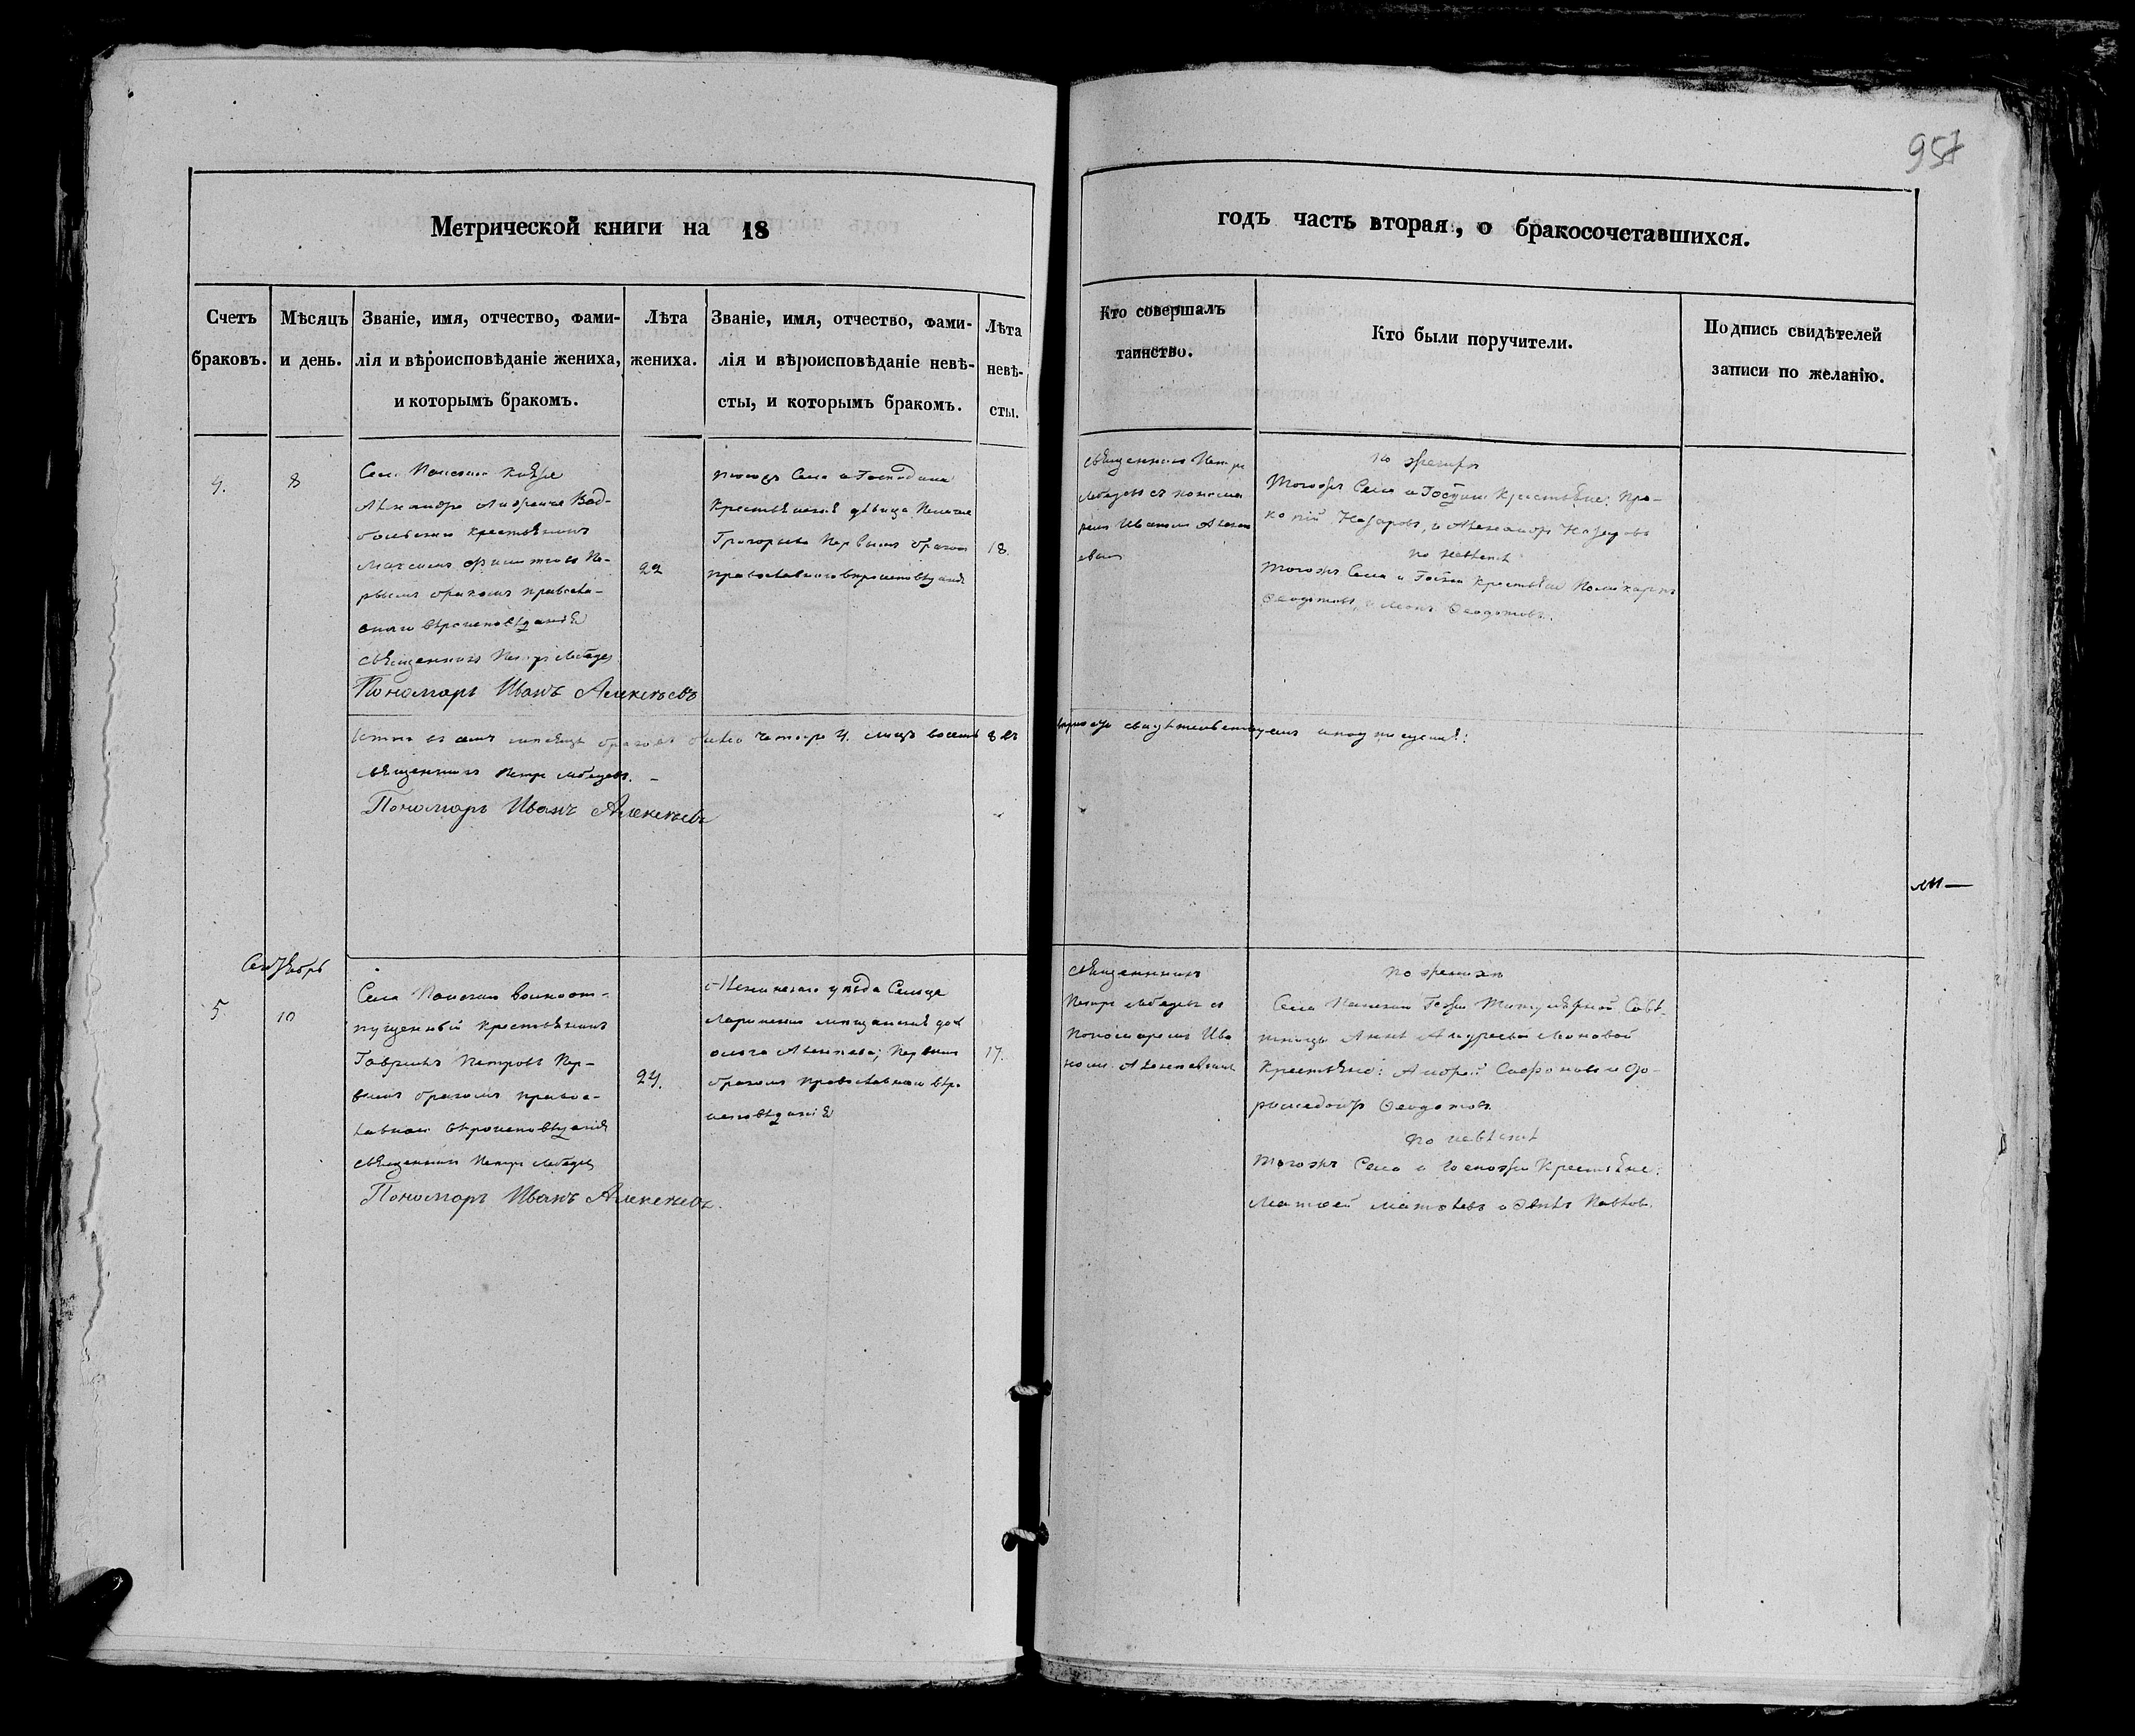 957
Метрической книги на 18
годъ часть вторая, о бракосочетавшихся.
Счетъ
браковъ.
Мѣсяцъ
и день.
Званіе, имя, отчество, фами-
лія и вѣроисповѣданіе жениха,
и которымъ бракомъ.
Лѣта
жениха.
Званіе, имя, отчество, фами-
лія и вѣроисповѣданіе невѣ-
сты, и которымъ бракомъ.
Лѣта
невѣ-
сты.
Кто совершалъ
таинство.
Кто были поручители.
Подпись свидѣтелей
записи по желанію.
4.
8
Села Князя
Александра Андреича Вад-
больскаго крестьянинъ
Максимъ Пе-
рвымъ бракомъ правосла-
внаго вѣроисповѣданія
священникъ Петръ Лебедев
Пономарь Иванъ Алексѣевъ
22
тогожъ Села и Господина
Крестьянская дѣвица Пелагея
Григорьева Первымъ бракомъ
православнаго вѣроисповѣданія
18.
священникъ Петръ
Лебедевъ съ понома
ремъ Иваномъ Алексѣ
евымъ
по женихѣ
Тогожъ Села и Госпдина Крестьяне: Про-
копій Назаровъ, и Александръ Назаровъ
по невѣстѣ
тогожъ Села и Крестьяне Поликарпъ
Ѳеодотовъ, и Ѳеодотовъ.
Итого въ семъ мѣсяцѣ браковъ было четыре 4. лицъ восемь 8 въ
вѣрности свидѣтельствуемъ и подписуемся:
священникъ Петръ Лебедевъ.
Пономарь Иванъ Алексѣевъ
Сентябрь
5.
10
Села вольноот-
пущенный крестьянинъ
Гавриилъ Петровъ Пер-
вымъ бракомъ правос-
лавнаго вѣроисповѣданія
священникъ Петръ Лебедев
Пономарь Иванъ Алексѣевъ.
24.
уѣзда Сельца
мѣщанская дочь
Ольга Алексѣева; Первымъ
бракомъ православнаго вѣро
исповѣданія
17.
священникъ
Петръ Лебедевъ съ
пономаремъ Ива
номъ Алексѣевымъ
по женихѣ
Села Гспжи Титулярной Совѣ-
тницы Анны
Крестьяне: Андрей Сафоновъ и До-
римедонтъ Ѳеодотовъ.
по невѣстѣ
тогожъ Села и Госпожи Крестьяне:
Матѳей Матвѣевъ и Павловъ.